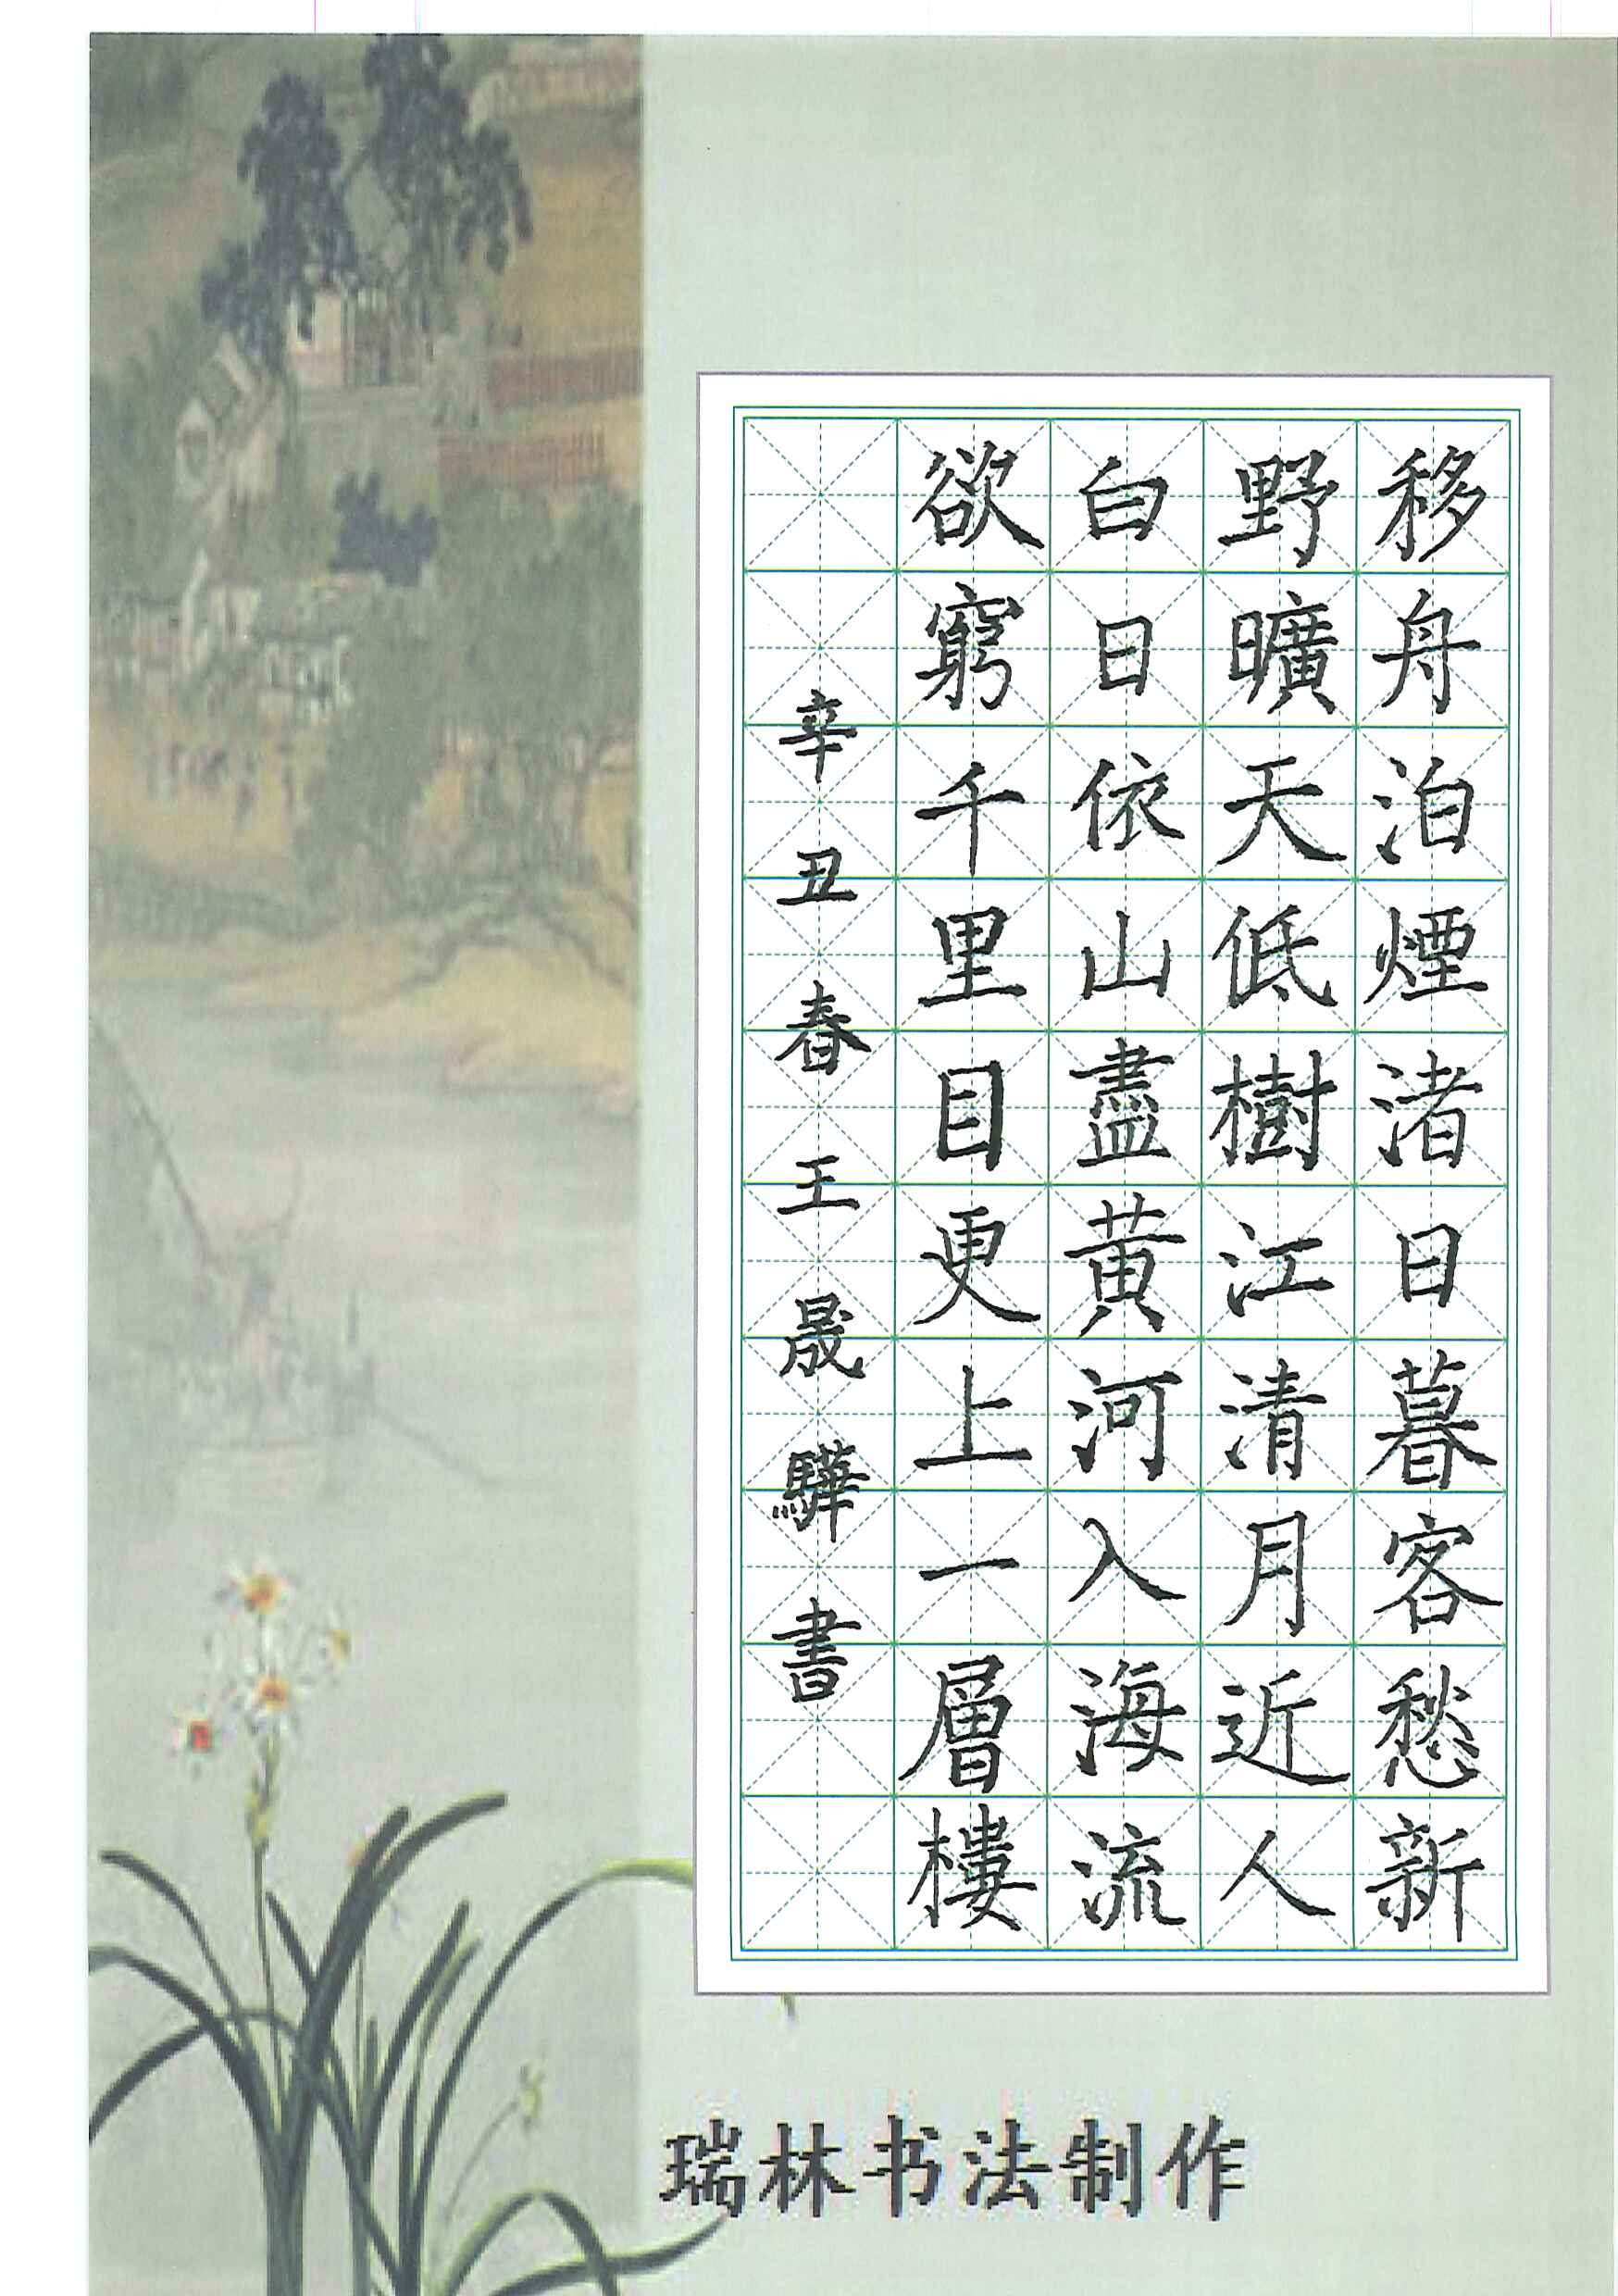 移舟泊煙渚日暮客愁新
野曠天低樹江清月近人
白日依山盡黃河入海流
欲窮千里目更上一層樓
辛丑春王晟驊書
瑞林书法制作